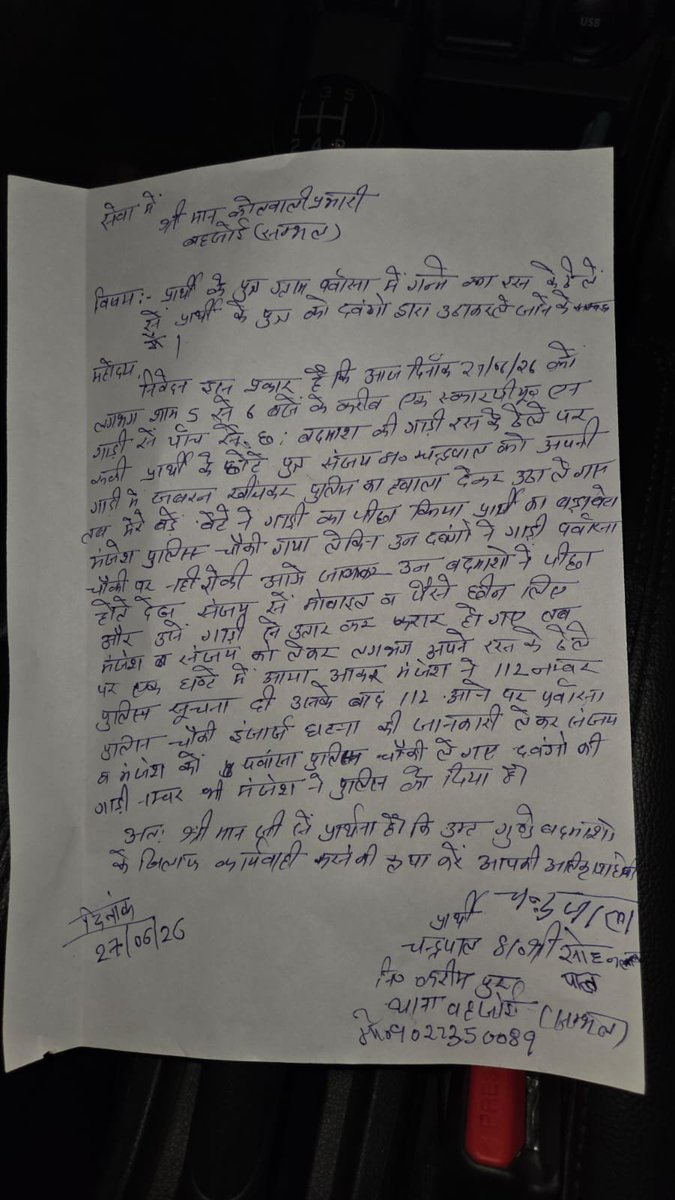 सेवा में
श्री मान कोतवाली प्रभारी
बहजोई (सम्भल)
विषय:- प्रार्थी के पुत्र ग्राम पवांसा में गन्ने का रस के ठेले
से प्रार्थी के पुत्र को दबंगो द्वारा उठाकर ले जाने के
में।
महोदय,
निवेदन इस प्रकार है कि आज दिनाँक 27/06/26 को
लगभग शाम 5 से 6 बजे के करीब एक स्कारपीयू एन
गाडी से पाँच से छ: बदमाश की गाडी रस के ठेले पर
रूकी प्रार्थी के छोटे पुत्र संजय S/० चन्द्रपाल को अपनी
गाडी में जबरन खींचकर पुलिस का हवाला देकर उठा ले गाए
तब मेरे बडे बेटे ने गाडी का पीछा किया प्रार्थी का बड़ा बेटा
मंजेश पुलिस चौकी गया लेकिन उन दबंगो ने गाडी पवांसा
चौकी पर नहीं रोकी आगे जाकर उन बदमाशो ने पीछा
होते देख संजय से मोबाइल व पैसे छीन लिए
और उसे गाडी से उतार कर फरार हो गए तब
मंजेश संजय को लेकर लगभग अपने रस के ठेले
पर एक घंटे में आया आकर मंजेश ने 112 नम्बर
पुलिस सूचना दी उसके बाद 112 आने पर पवांसा
पुलिस चौकी इंचार्ज घटना की जानकारी लेकर संजय
व मंजेश को पवांसा पुलिस चौकी ले गए दबंगो की
गाडी नम्बर भी मंजेश ने पुलिस को दिया है।
अत: श्री मान जी से प्रार्थना है। कि उक्त गुण्डे बदमाशो
के खिलाफ कार्यवाही करने की कृपा करें आपकी अति कृपा होगी
दिनांक
27/06/26
चन्द्रपाल
प्रार्थी
चन्द्रपाल S/० श्री सोहन
पाल
नि० करीम पुर
थाना बहजोई (सम्भल)
मो० 9027350089
3 5
2 4 R
USB
PRESS